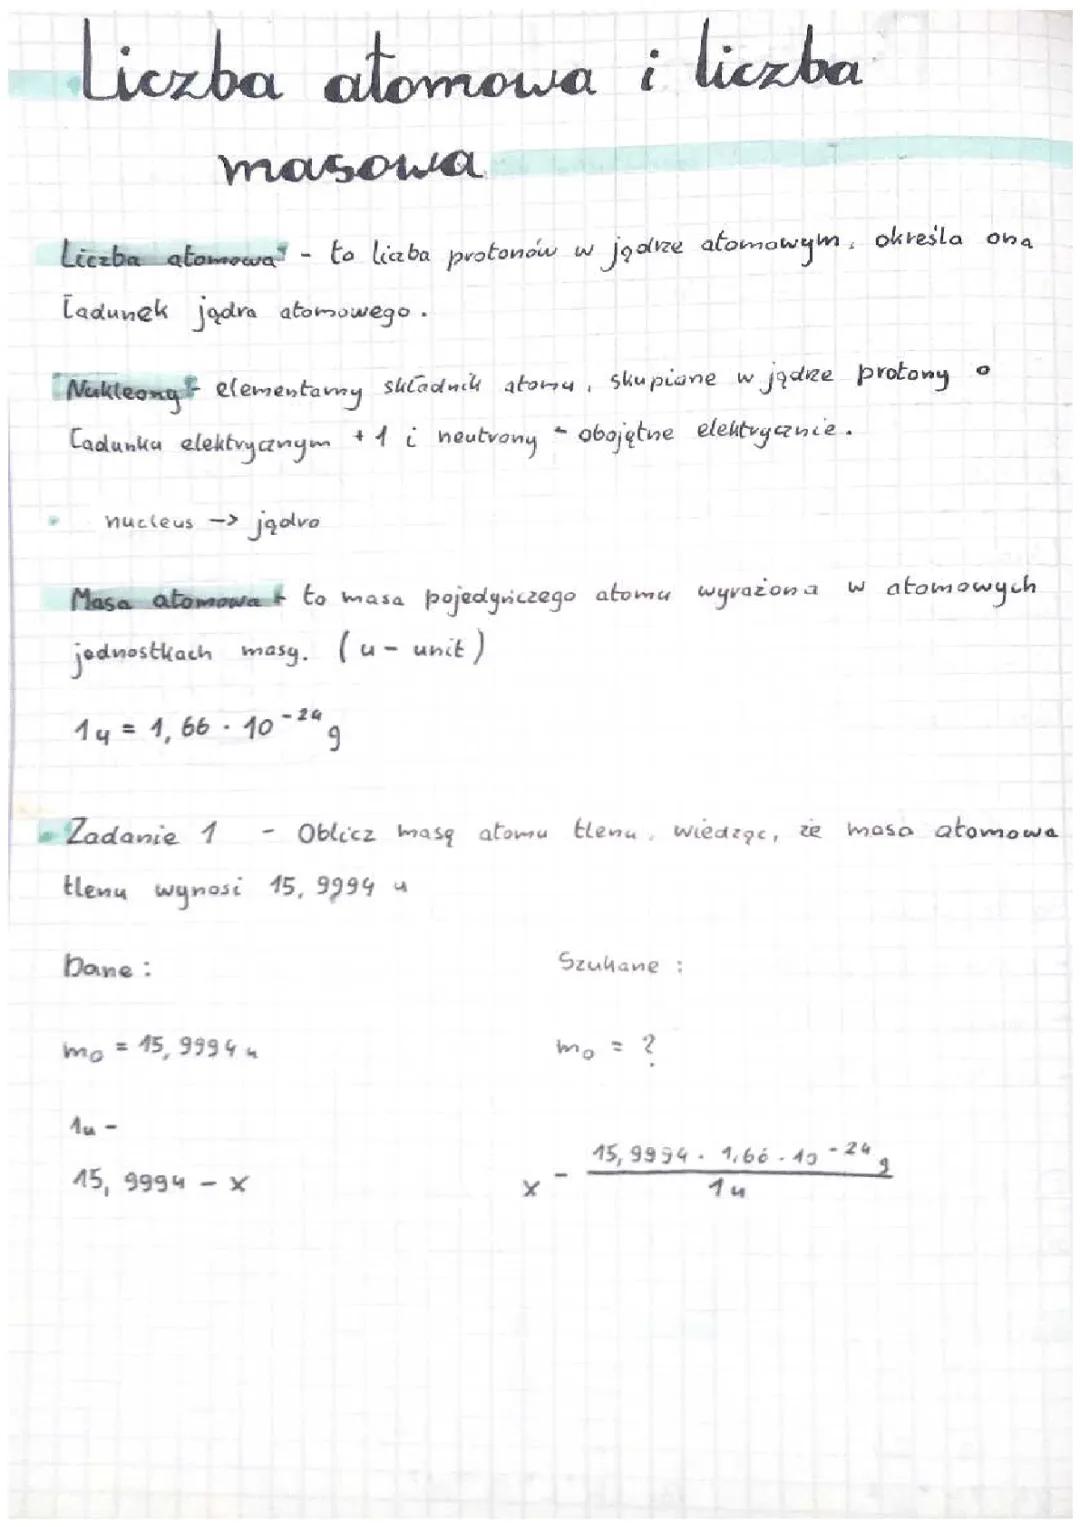 Liczba atomowa i liczba
masowa
Liczba atomowa - to liczba protonów w jądrze atomowym, określa ona
ładunek jądra atomowego.
Nukleony - elementarny składnik atomu, skupione w jądrze protony o
ładunku elektrycznym +1 i neutrony - obojętne elektrycznie.
nucleus -> jądro
Masa atomowa - to masa pojedyńczego atomu wyrażona w atomowych
jednostkach masy. (u - unit)
1u = 1,66 · 10⁻²⁴ g
Zadanie 1 - Oblicz masę atomu tlenu, wiedząc, że masa atomowa
tlenu wynosi 15,9994 u
Dane: Szukane:
mo = 15,9994 u mo = ?
1u -
15,9994 - x
x - 15,9994 · 1,66 · 10⁻²⁴ g
1u